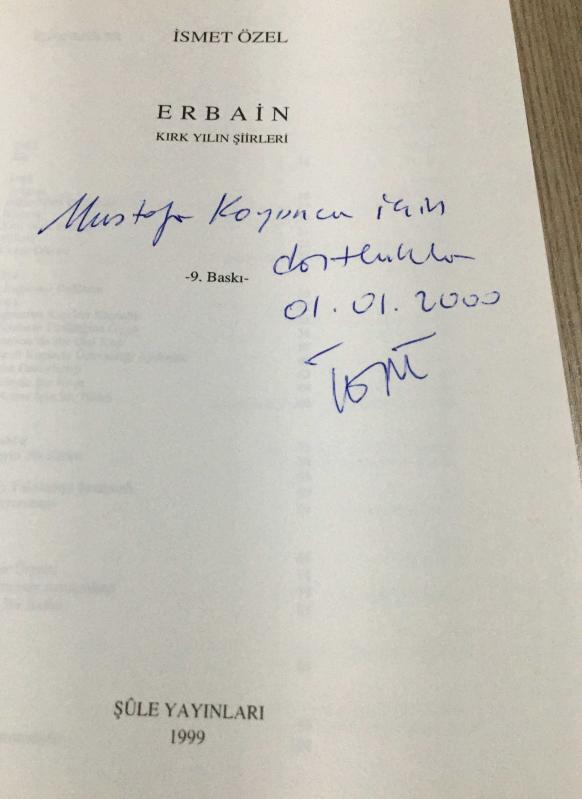 İSMET ÖZEL
ERBAİN
KIRK YILIN ŞİİRLERİ
Mustafa Koyuncu için
-9. Baskı-
dostlukla
01.01.2000
ŞÛLE YAYINLARI
1999